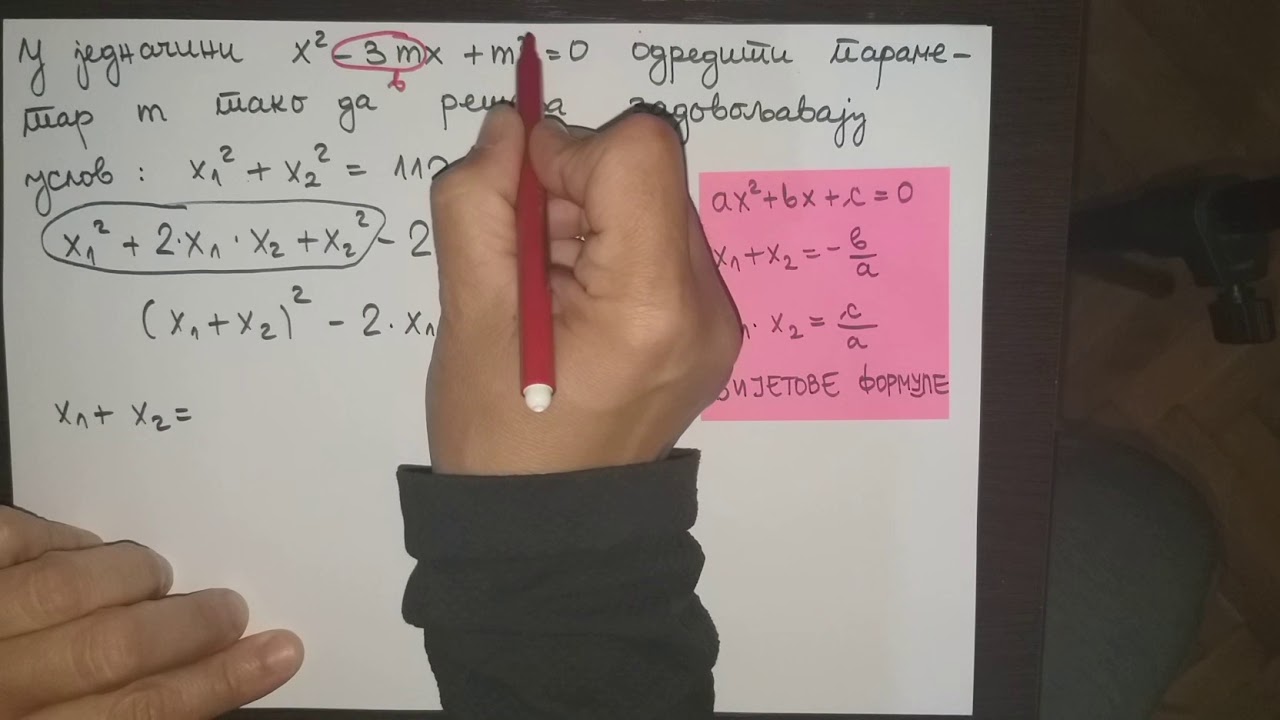 У једначини x² - 3mx + m² = 0 одредити параме-
b
тар m тако да задовољавају
услов: x₁² + x₂² = 112
x₁² + 2·x₁·x₂ + x₂² - 2
(x₁ + x₂)² - 2·x₁
x₁ + x₂ =
ax² + bx + c = 0
x₁ + x₂ = - b/a
· x₂ = c/a
ВИЈЕТОВЕ ФОРМУЛЕ